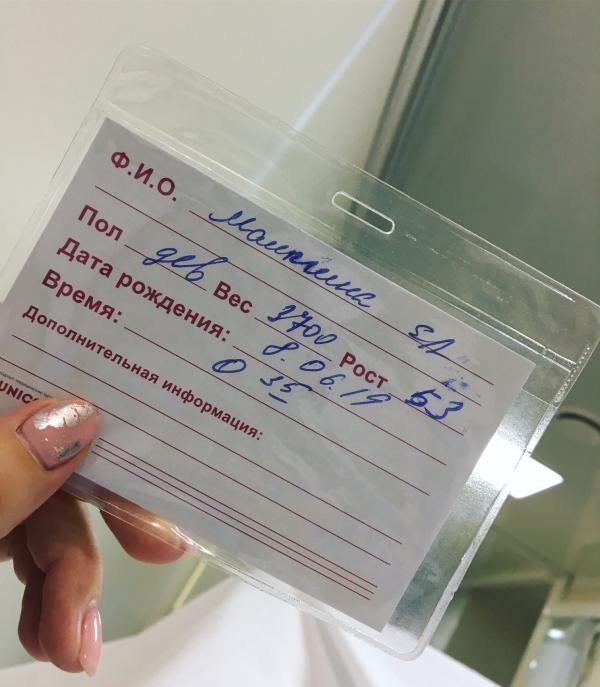 Ф.И.О.
Пол дев Вес 3700 Рост 53
Дата рождения: 8.06.19
Время: 0 35
Дополнительная информация: